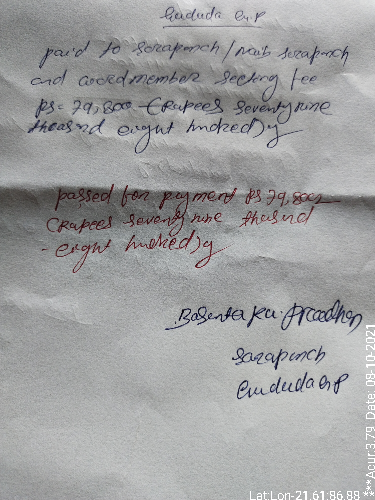 Gududa G.P
paid to sarapanch / Naib sarapanch
and wardmember seeting fee
Rs= 79,800 (Rupees seventy nine
thousnd eight hndred)y
passed for payment Rs 79,800
(Rupees seventy nine thousnd
eight hndred)y
Basanta Ku. pradhan
sarapanch
Gududa G.P
Lat Lon-21.61:86.88
***Acur:3.79 Date: 08-10-2021